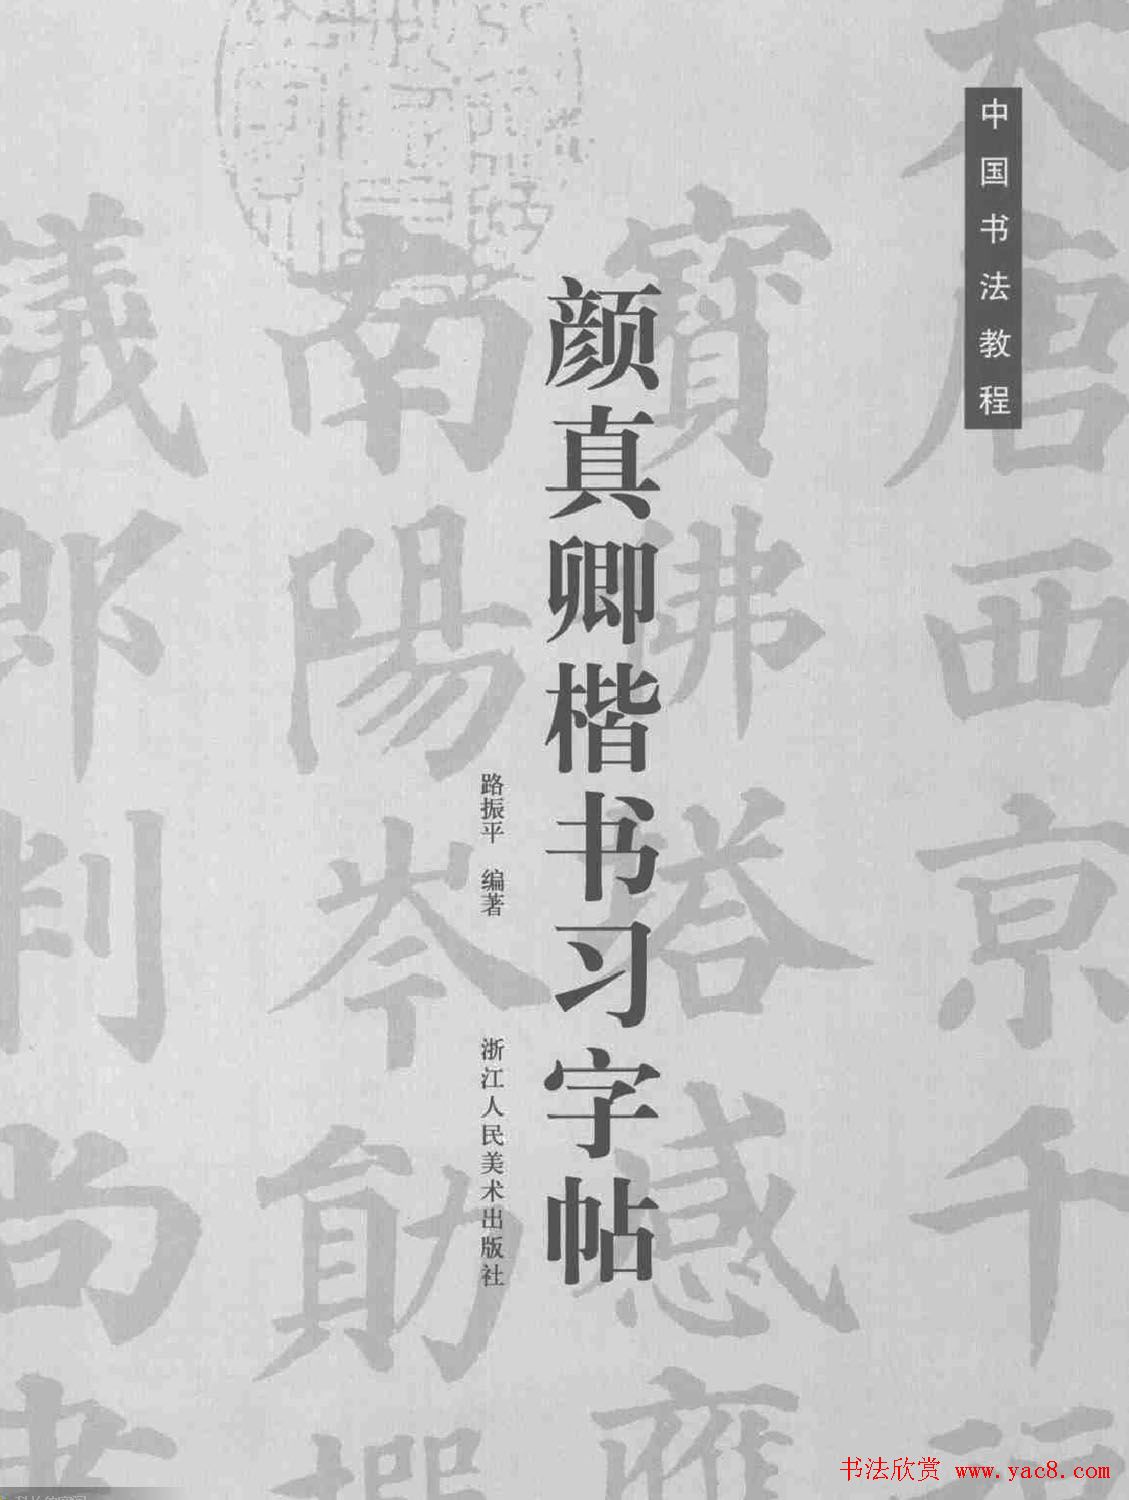 中国书法教程
颜真卿楷书习字帖
路振平 编著
浙江人民美术出版社
大唐西京千福
寶佛塔感應
南陽岑勛撰
議郎判尚書
书法欣赏 www.yac8.com